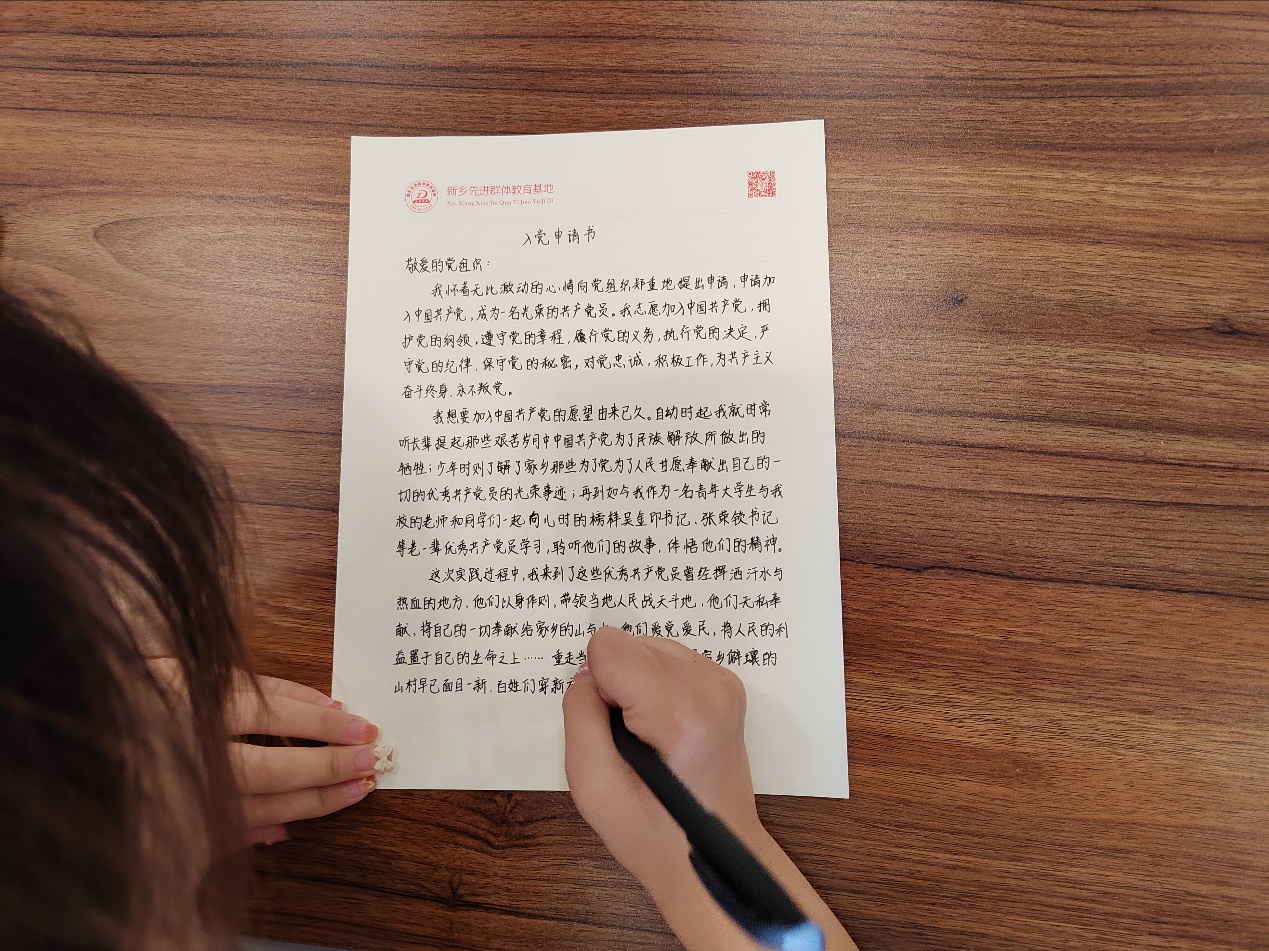 新乡先进群体教育基地
Xin Xiang Xian Jin Qun Ti Jiao Yu Ji Di
入党申请书
敬爱的党组织：
我怀着无比激动的心情向党组织郑重地提出申请，申请加
入中国共产党，成为一名光荣的共产党员。我志愿加入中国共产党，拥
护党的纲领，遵守党的章程，履行党的义务，执行党的决定，严
守党的纪律，保守党的秘密，对党忠诚，积极工作，为共产主义
奋斗终身，永不叛党。
我想要加入中国共产党的愿望由来已久。自幼时起我就时常
听长辈提起那些艰苦岁月中中国共产党为了民族解放所做出的
牺牲；少年时则了解了家乡那些为了党为了人民甘愿奉献出自己的一
切的优秀共产党员的光荣事迹；再到如今我作为一名青年大学生与我
校的老师和同学们一起向心时的榜样吴金印书记、张荣锁书记
等老一辈优秀共产党员学习，聆听他们的故事，体悟他们的精神。
这次实践过程中，我来到了这些优秀共产党员曾经挥洒汗水与
热血的地方，他们以身作则，带领当地人民战天斗地，他们无私奉
献，将自己的一切奉献给家乡的山与 他们爱党爱民，将人民的利
益置于自己的生命之上…… 重走 家乡僻壤的
山村早已面目一新，百姓们穿新